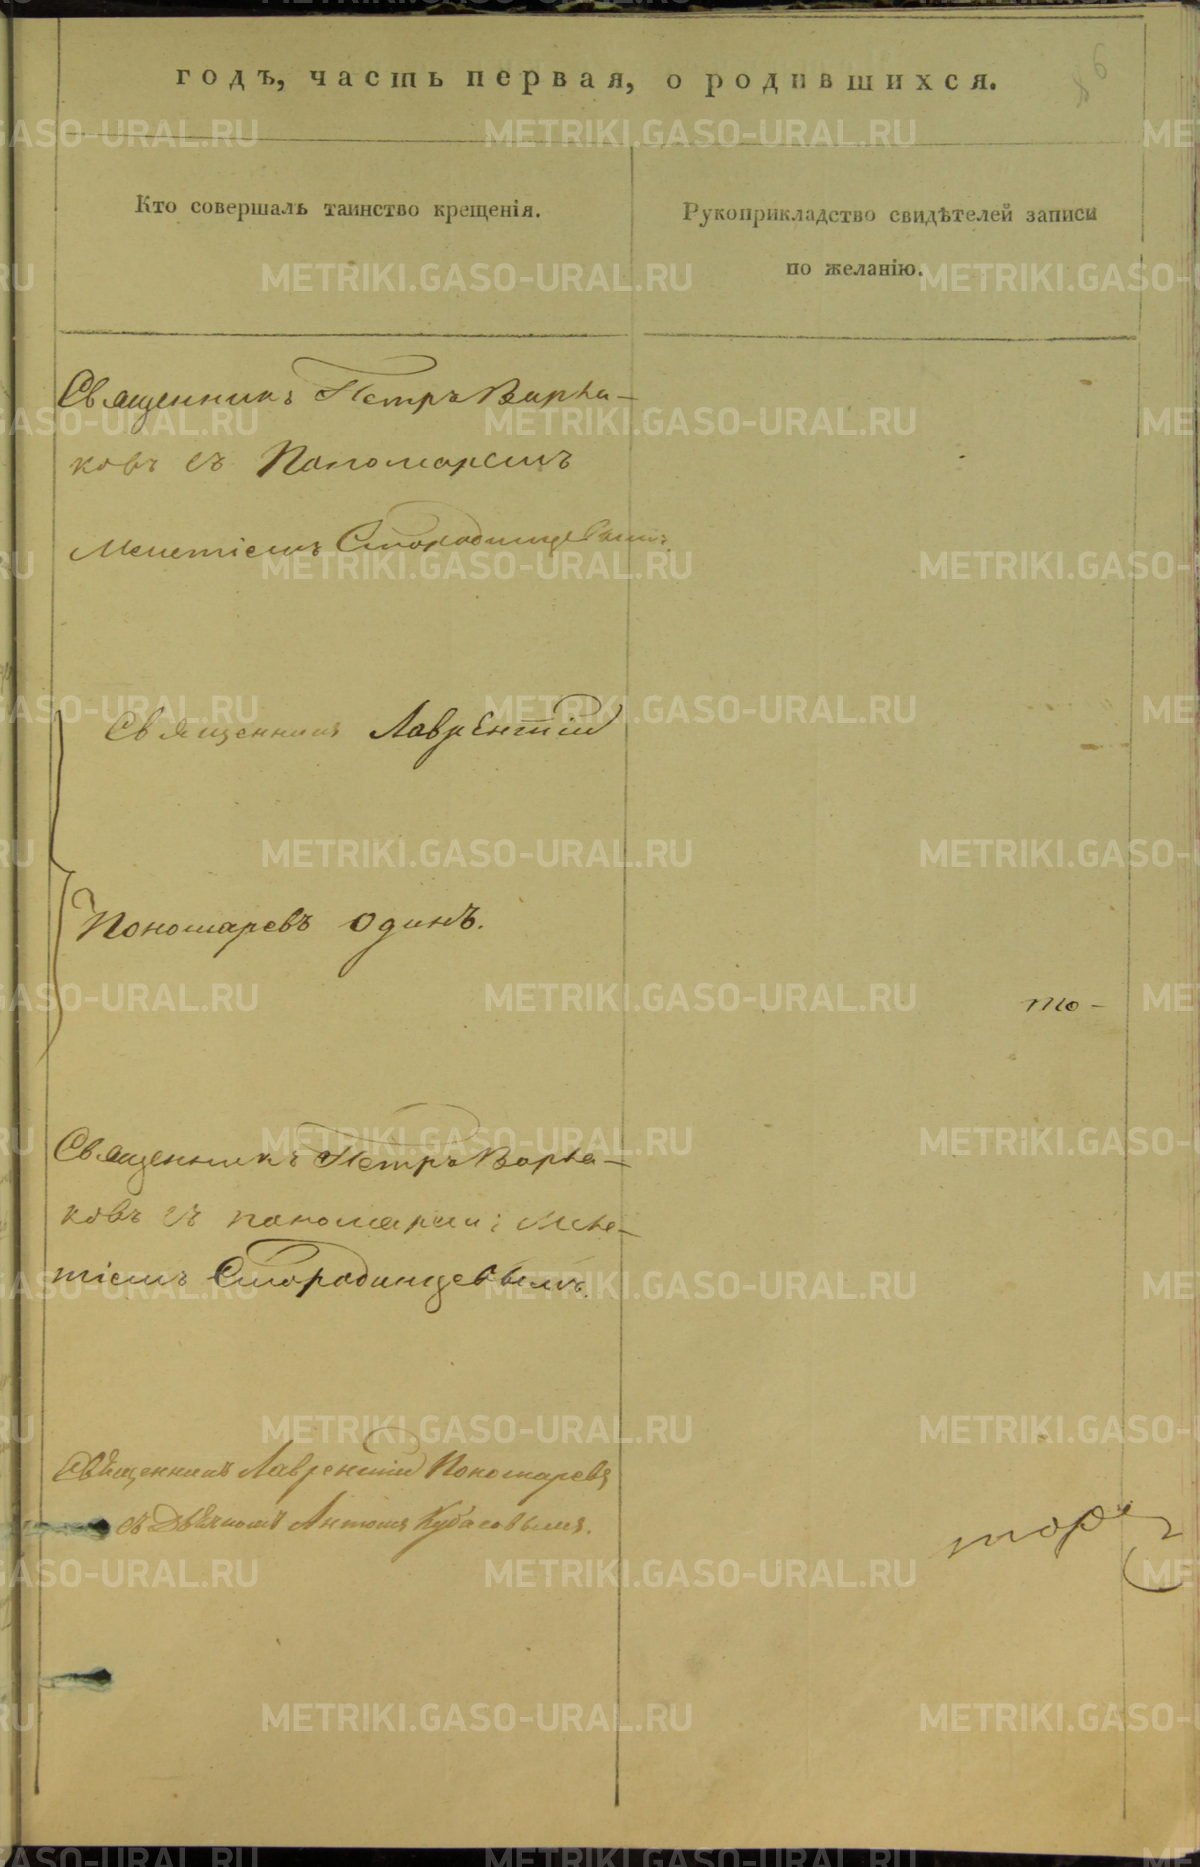 годъ, часть первая, о родившихся.
Кто совершалъ таинство крещенія.
Рукоприкладство свидѣтелей записи
по желанію.
Священникъ Петръ Варна-
ковъ съ Пономаремъ
Мелетіемъ Стародинцевымъ.
Священникъ Лаврентій
Пономаревъ одинъ.
то-
Священникъ Петръ Варна-
ковъ съ пономаремъ Меле-
тіемъ Стародинцевымъ.
Священникъ Лаврентій Пономаревъ
съ Дьячкомъ Антономъ Кубасовымъ.
METRIKI.GASO-URAL.RU